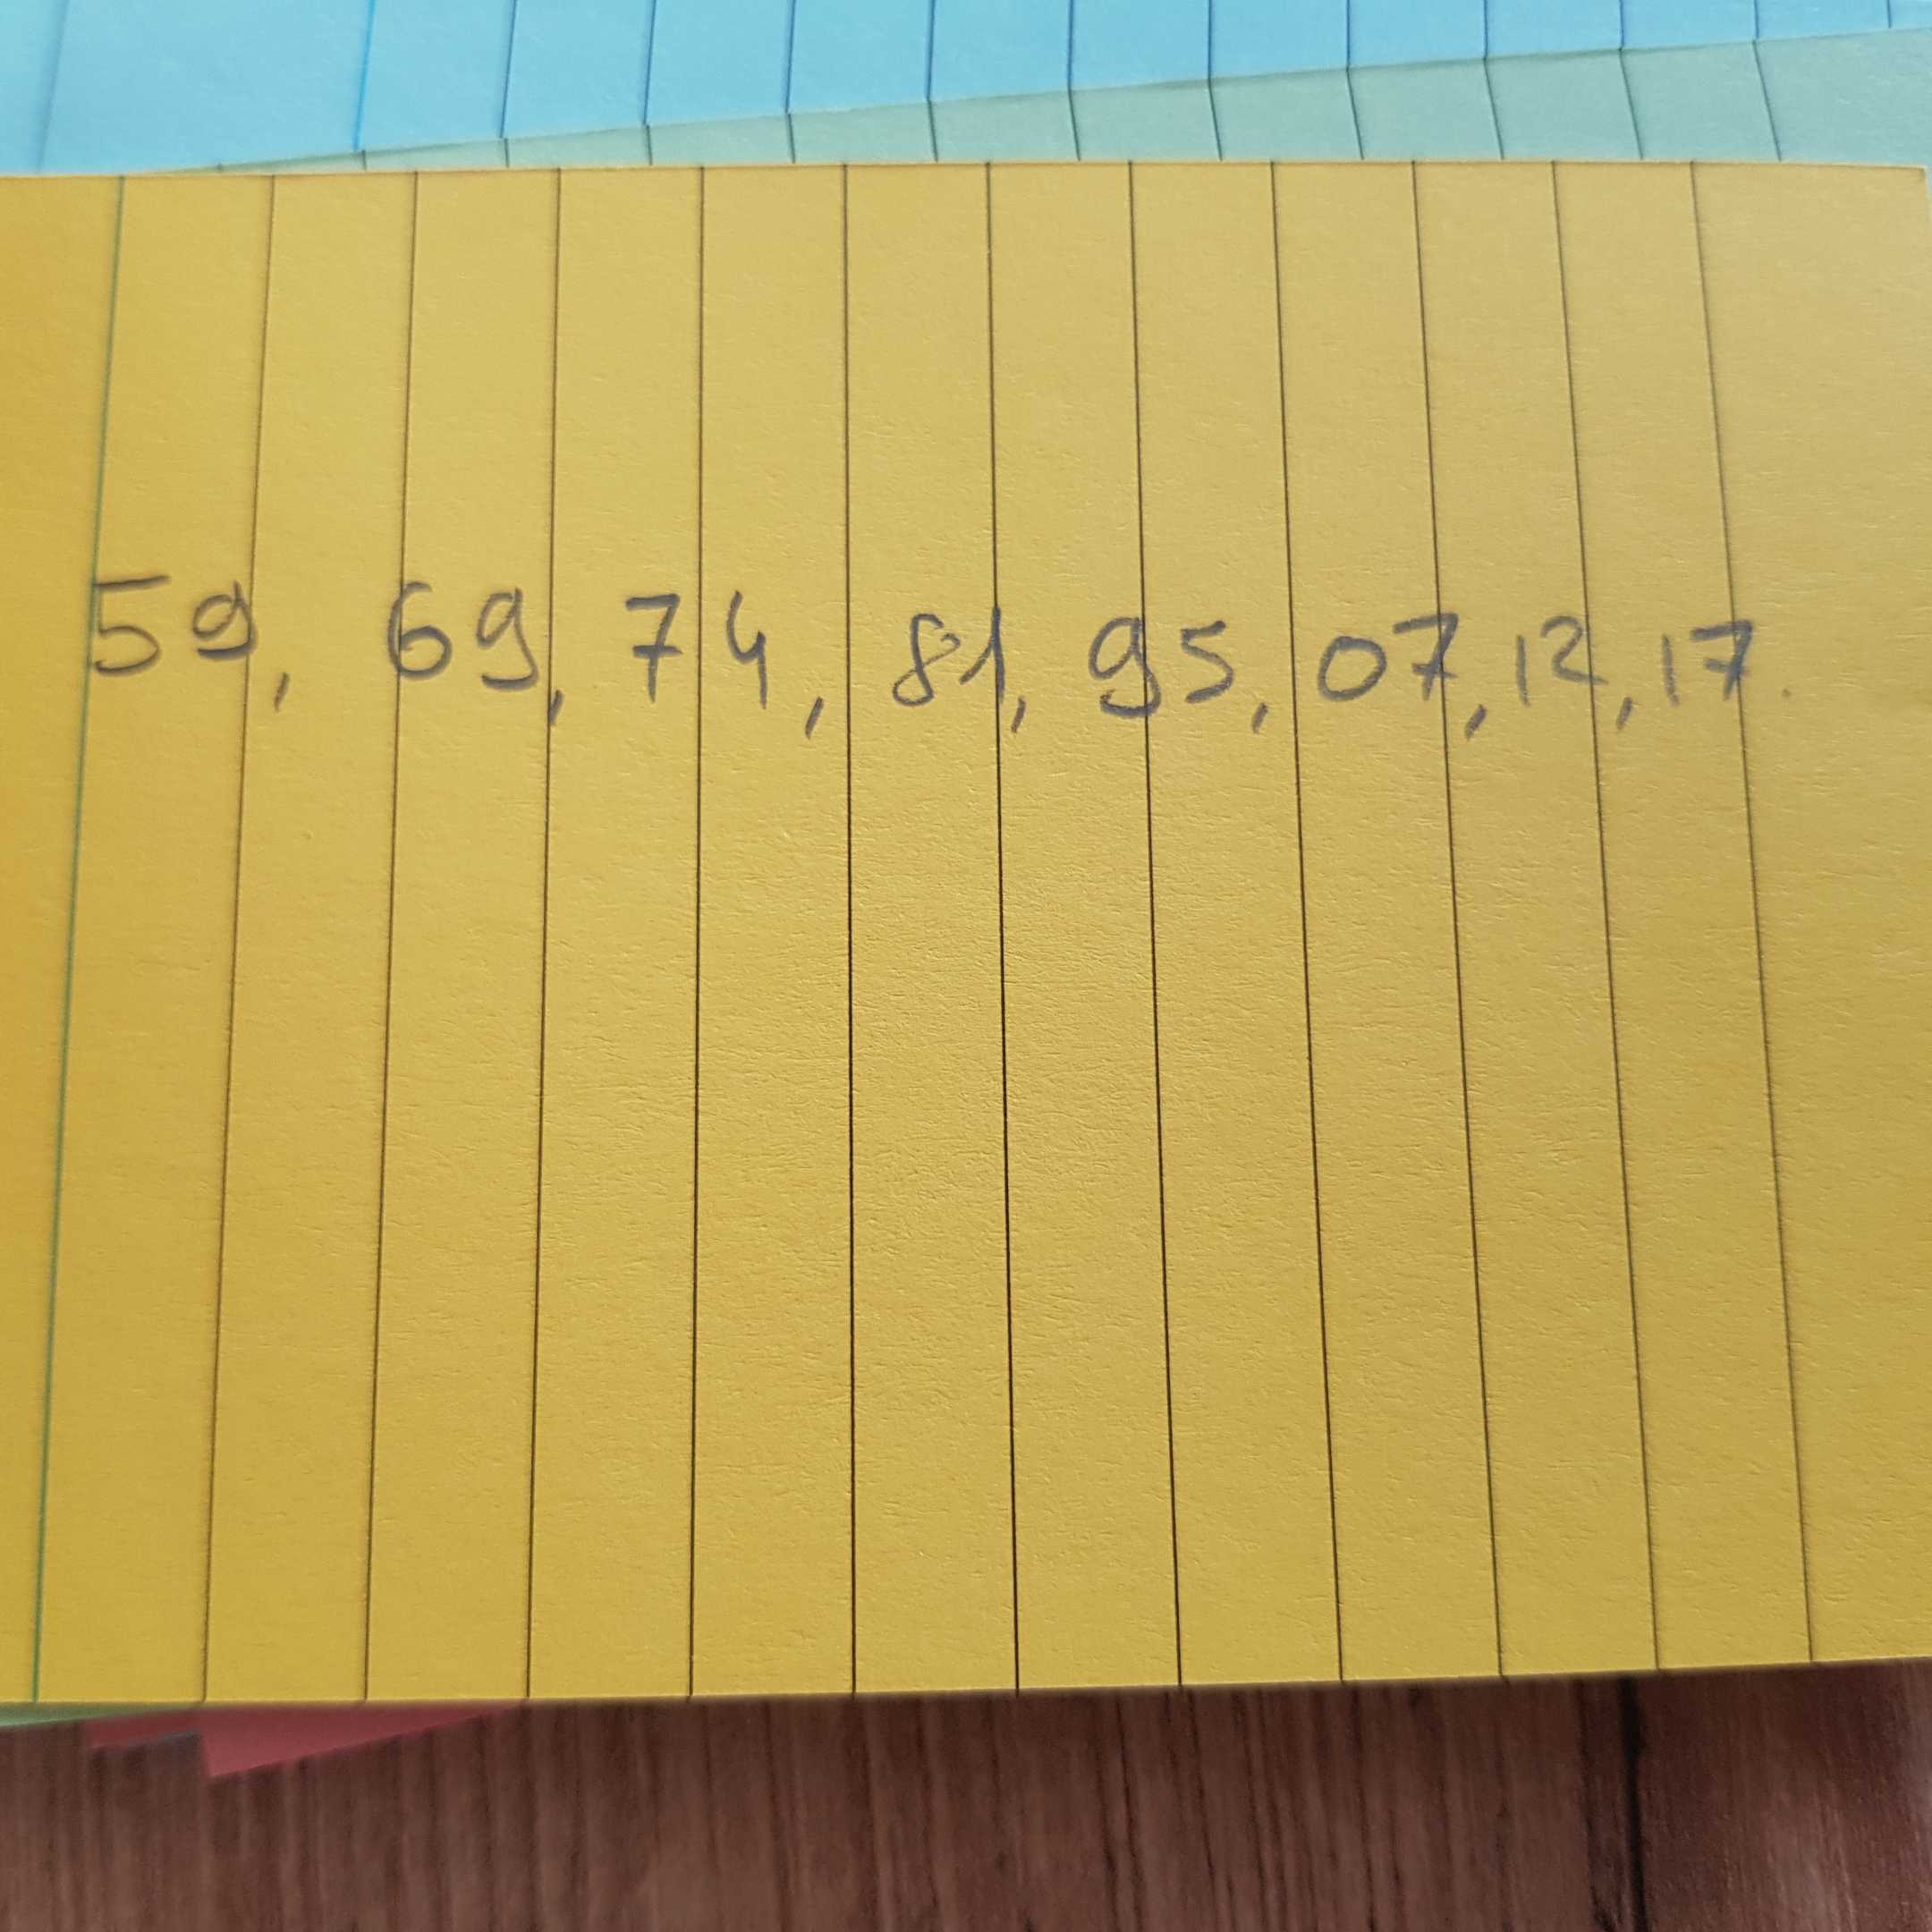 59, 69, 74, 81, 95, 07, 12, 17.